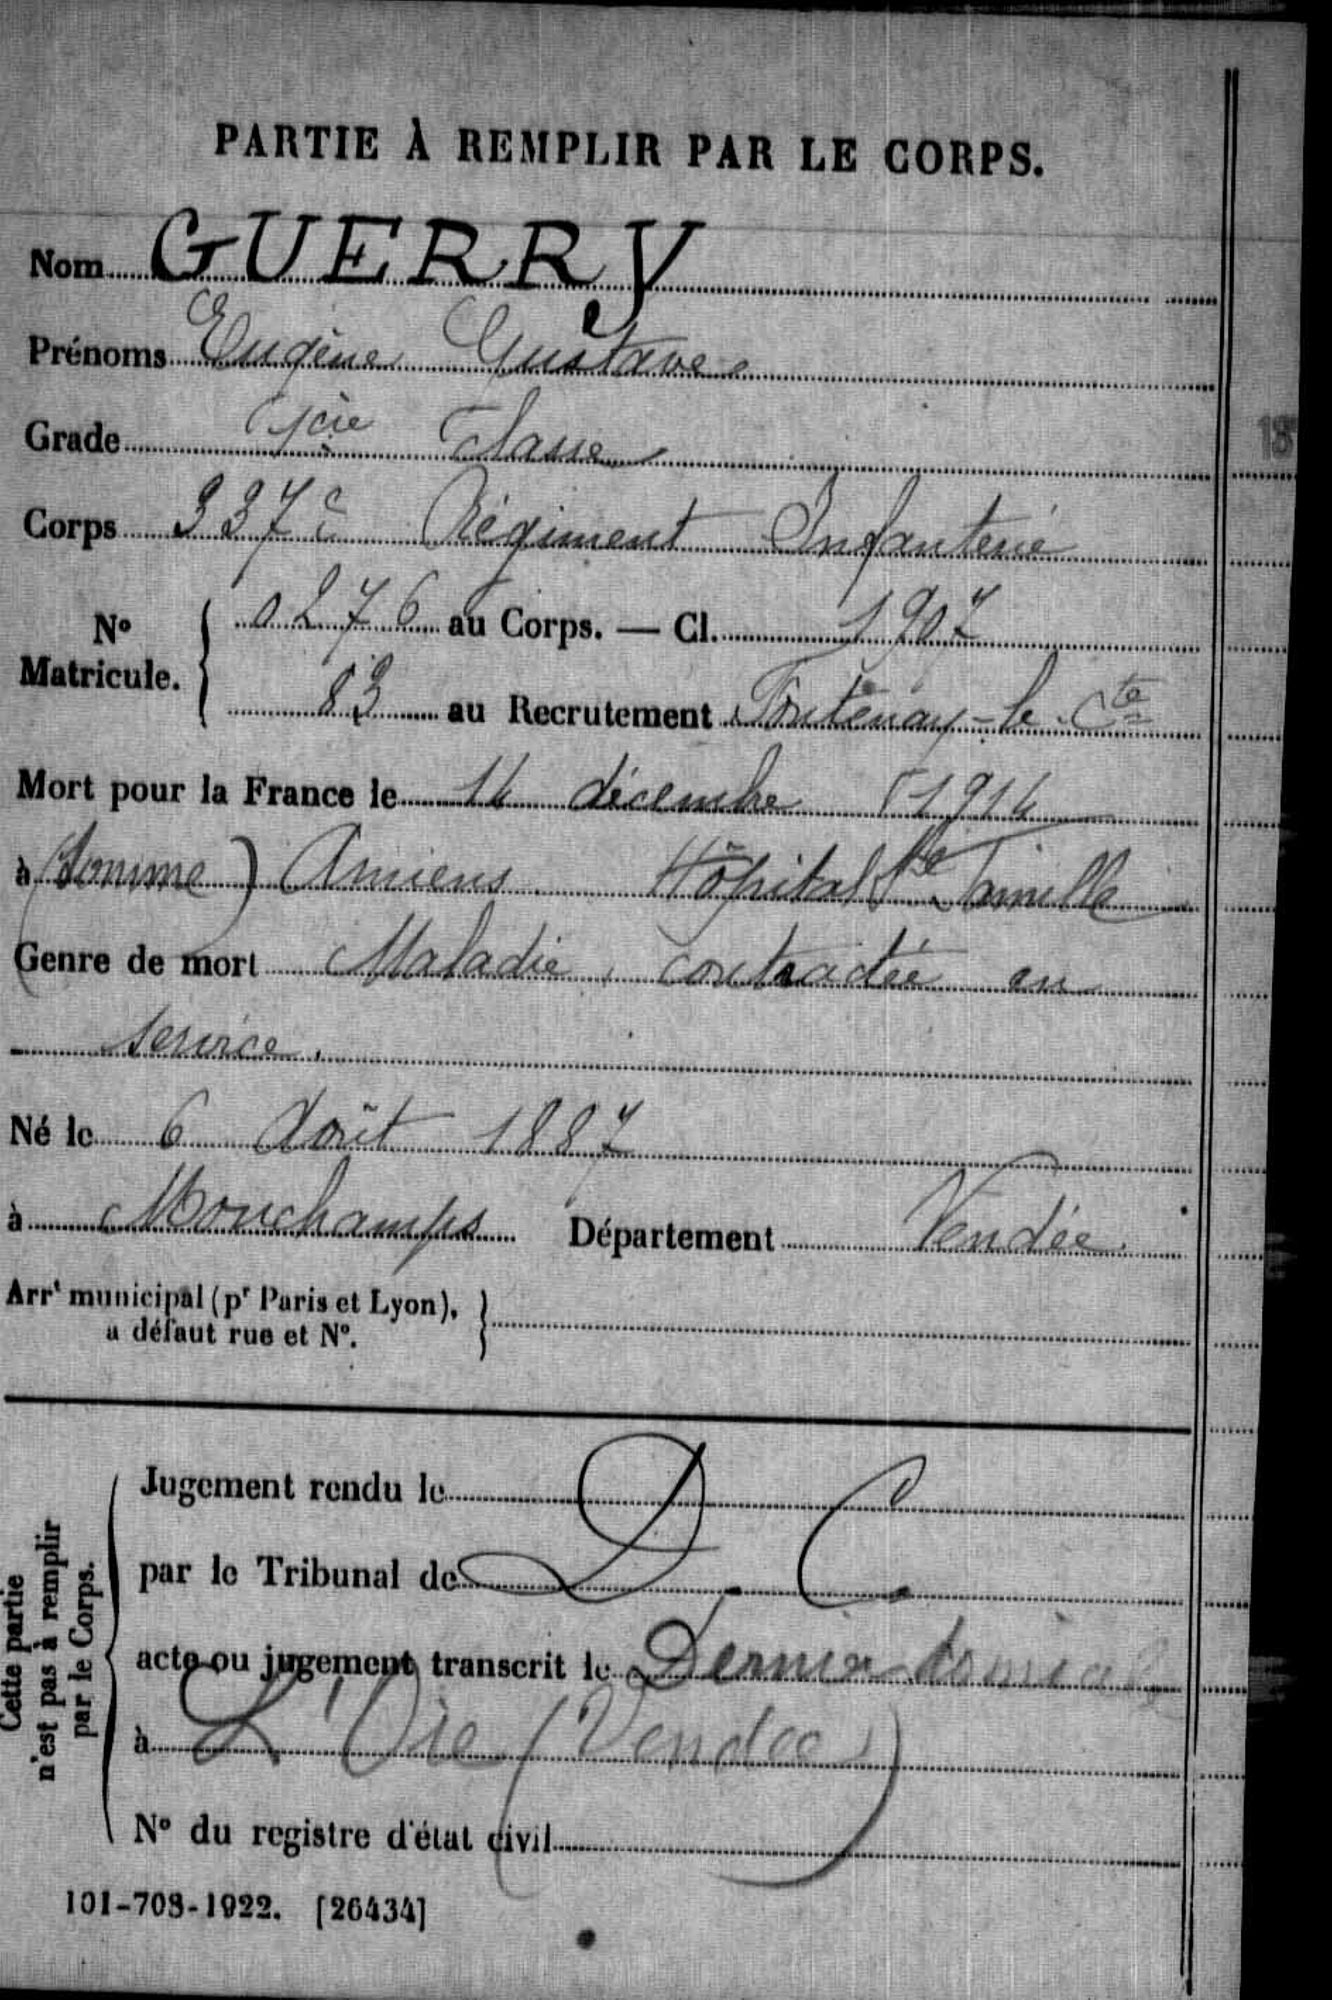 PARTIE À REMPLIR PAR LE CORPS.
Nom GUERRY
Prénoms Eugène Gustave
Grade 1cie Classe
Corps 337e Régiment Infanterie
No Matricule. 0276 au Corps. — Cl. 1907
83 au Recrutement Fontenay-le-Cte
Mort pour la France le 14 décembre 1914
à (Somme) Amiens Hôpital Ste Famille
Genre de mort Maladie contractée en
service.
Né le 6 Août 1887
à Mouchamps Département Vendée.
Arrt municipal (pr Paris et Lyon),
a défaut rue et No.
Cette partie
n'est pas à remplir
par le Corps.
Jugement rendu le
par le Tribunal de D. C.
acte ou jugement transcrit le Dernier
à L'Oie (Vendée)
No du registre d'état civil
101-708-1922. [26434]